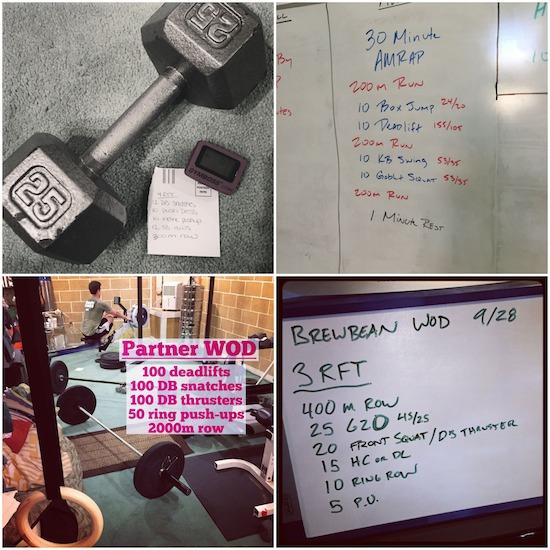 25
25
GYMBOSS
30 Minute
AMRAP
200 m Run
10 Box Jump 24/20
10 Deadlift 155/105
200m Run
10 KB Swing 53/35
10 Goblet Squat 53/35
200m Run
1 Minute Rest
Partner WOD
100 deadlifts
100 DB snatches
100 DB thrusters
50 ring push-ups
2000m row
BREWBEAN WOD 9/28
3 RFT
400 M ROW
25 G2O 45/25
20 FRONT SQUAT/DB THRUSTER
15 HC OR DL
10 RING ROW
5 P.U.